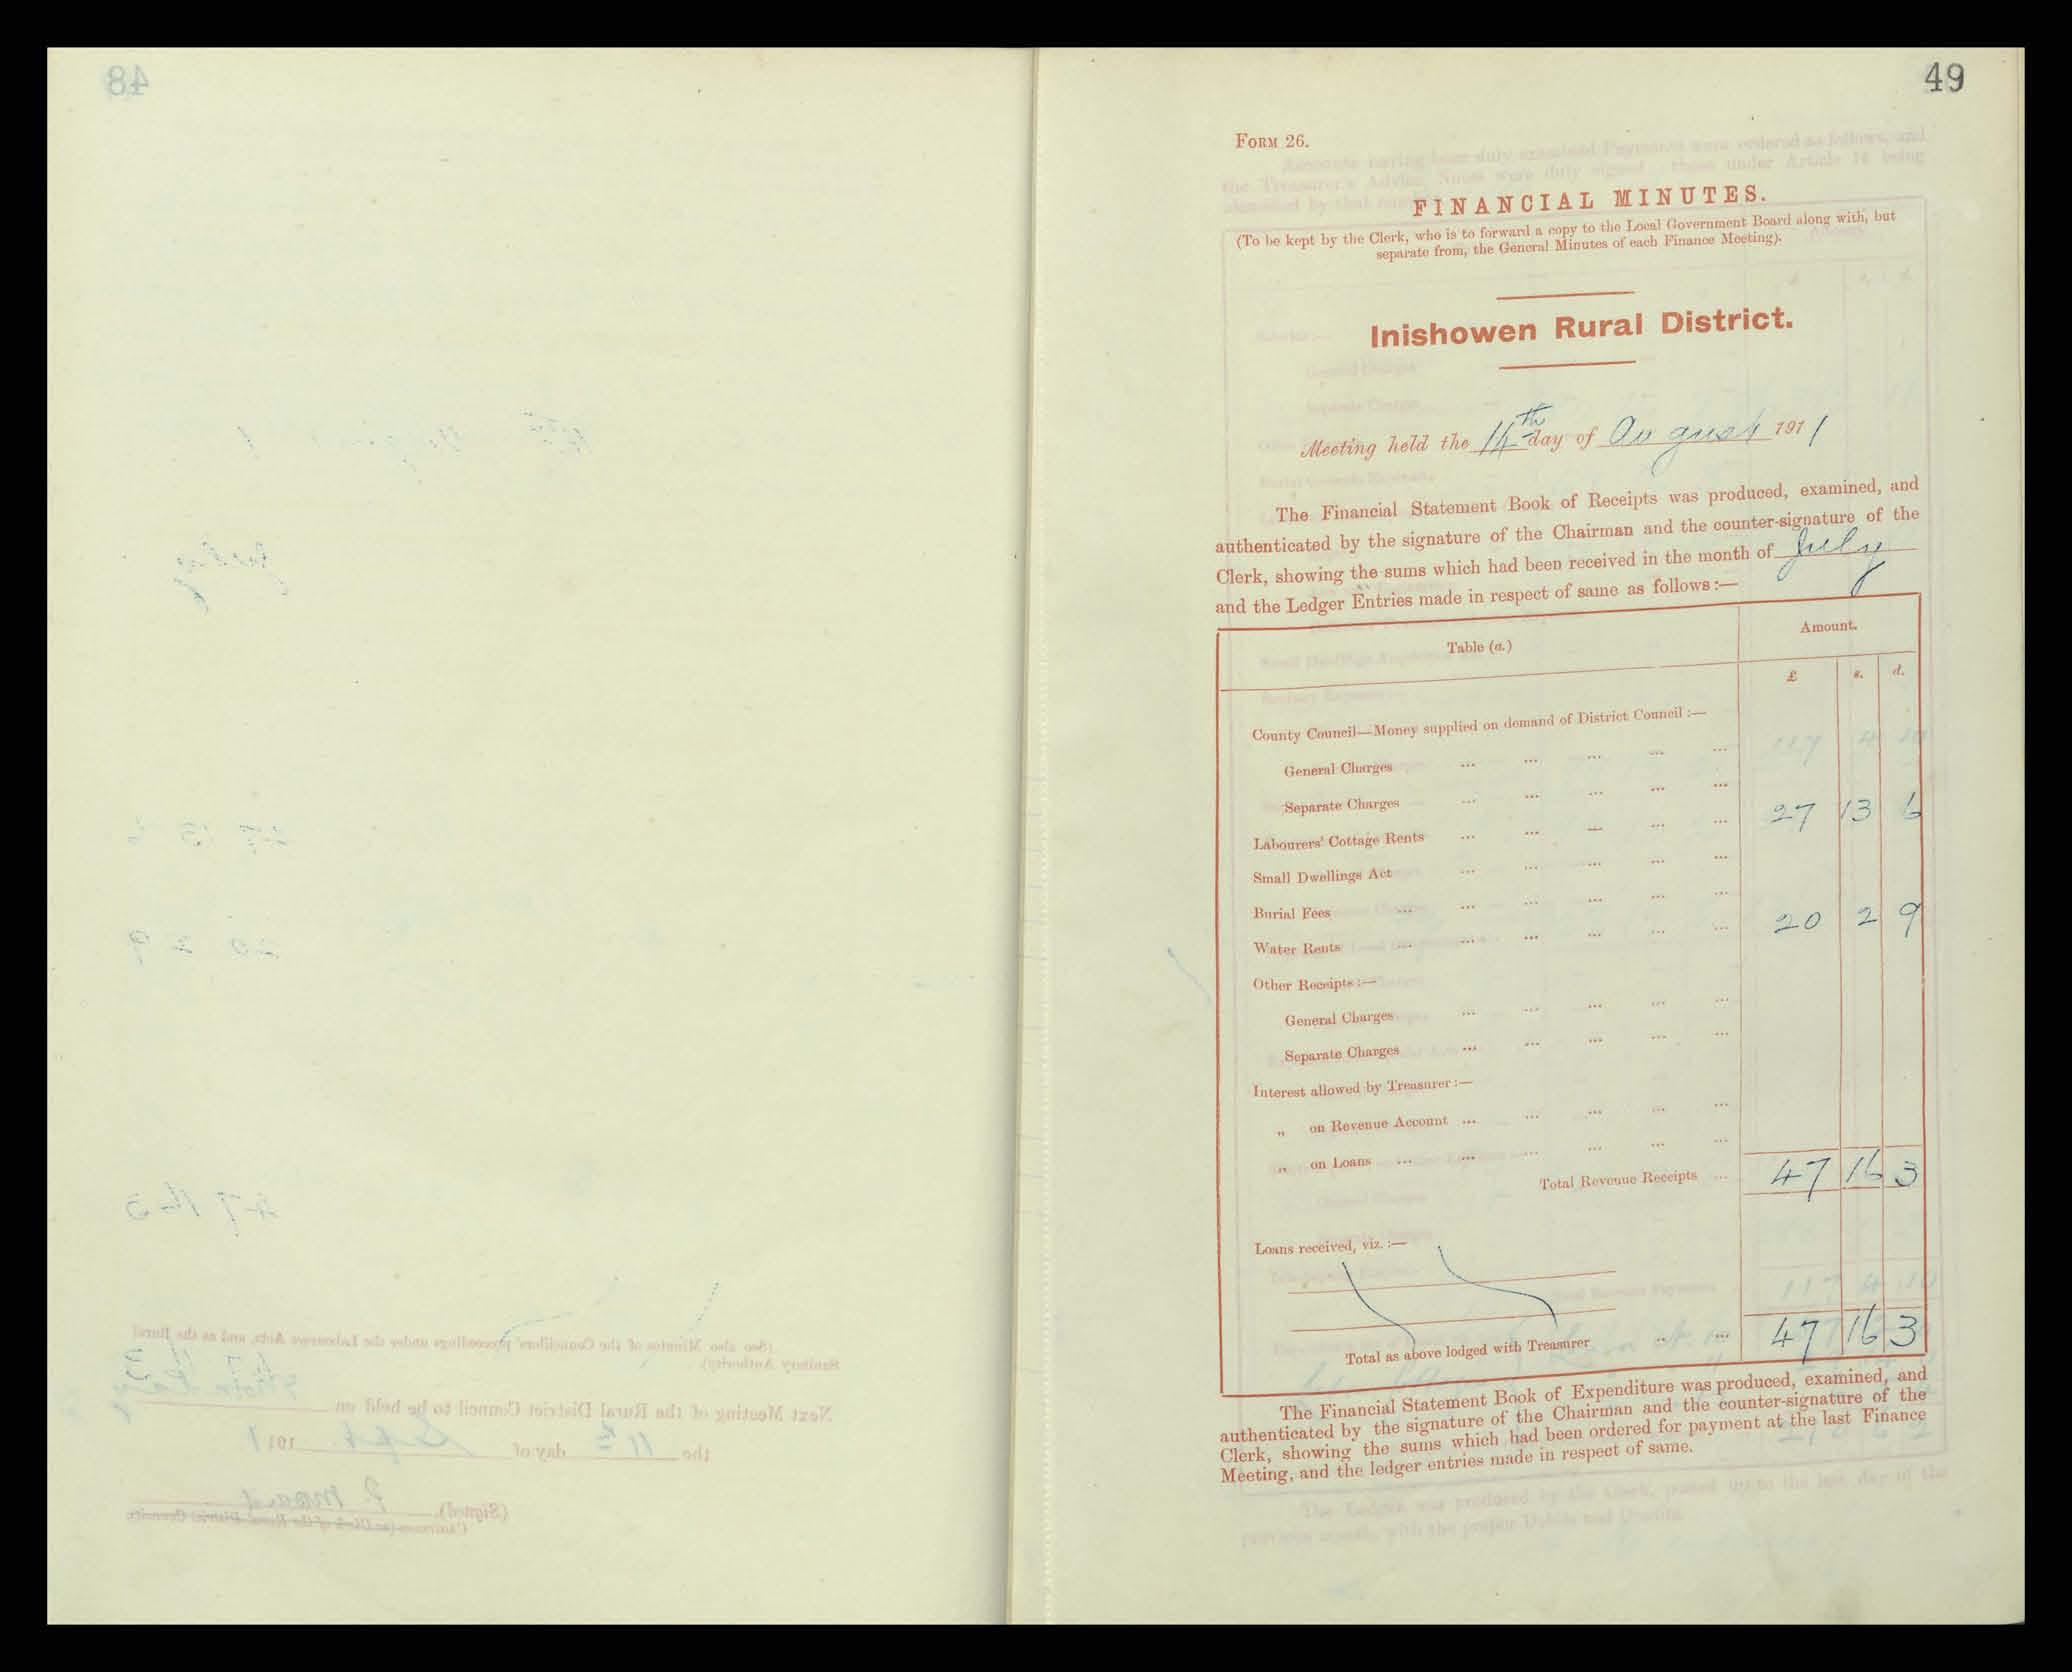 49
FORM 26.
FINANCIAL MINUTES.
(To be kept by the Clerk, who is to forward a copy to the Local Government Board along with, but
separate from, the General Minutes of each Finance Meeting).
Inishowen Rural District.
Meeting held the 14th day of August 1911
The Financial Statement Book of Receipts was produced, examined, and
authenticated by the signature of the Chairman and the counter-signature of the
Clerk, showing the sums which had been received in the month of July
and the Ledger Entries made in respect of same as follows :—
Table (a.) Amount.
£ s. d.
County Council—Money supplied on demand of District Council :—
General Charges ... ... ... ... ...
Separate Charges ... ... ... ... ...
Labourers' Cottage Rents ... ... ... ... ... 27 13 6
Small Dwellings Act ... ... ... ... ...
Burial Fees ... ... ... ... ... ...
Water Rents ... ... ... ... ... ... 20 2 9
Other Receipts :—
General Charges ... ... ... ... ...
Separate Charges ... ... ... ... ...
Interest allowed by Treasurer :—
„ on Revenue Account ... ... ... ... ...
„ on Loans ... ... ... ... ... ...
Total Revenue Receipts ... 47 16 3
Loans received, viz. :—
Total as above lodged with Treasurer ... ... 47 16 3
The Financial Statement Book of Expenditure was produced, examined, and
authenticated by the signature of the Chairman and the counter-signature of the
Clerk, showing the sums which had been ordered for payment at the last Finance
Meeting, and the ledger entries made in respect of same.